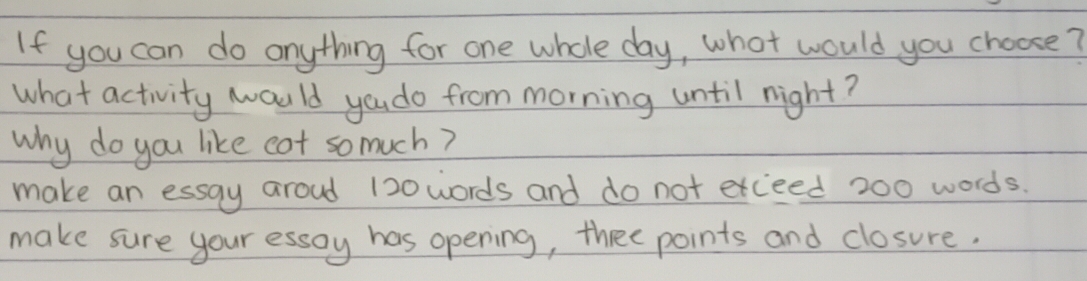 If you can do anything for one whole day, what would you choose?
What activity would you do from morning until night?
Why do you like eat so much?
make an essay aroud 120 words and do not exceed 200 words.
make sure your essay has opening, three points and closure.